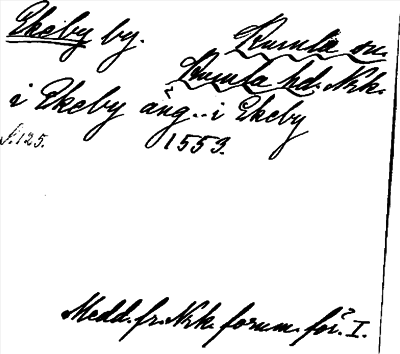 Ekeby by. Kumla sn.
Kumla hd. Nrk.
i Ekeby äng .. i Ekeby
s. 125. 1553.
Medd. fr. Nrk. fornm. för. I.